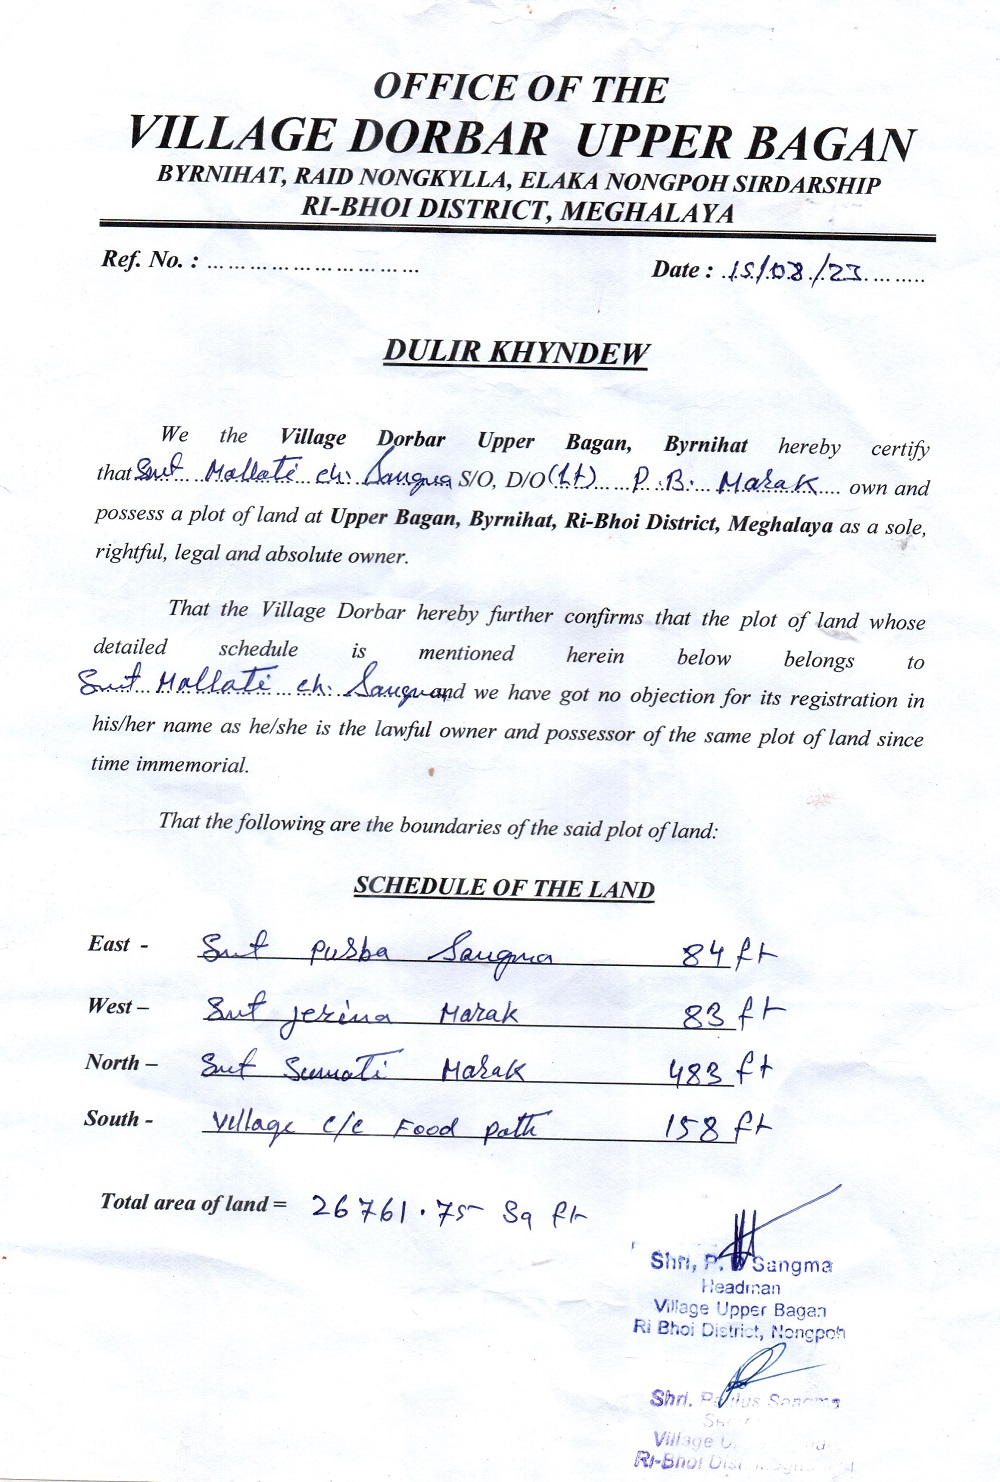 OFFICE OF THE
VILLAGE DORBAR UPPER BAGAN
BYRNIHAT, RAID NONGKYLLA, ELAKA NONGPOH SIRDARSHIP
RI-BHOI DISTRICT, MEGHALAYA
Ref. No. : ..............................
Date : 15/08/23
DULIR KHYNDEW
We the Village Dorbar Upper Bagan, Byrnihat hereby certify
that Smt Mallati ch. Sangma S/O, D/O (Lt) P. B. Marak own and
possess a plot of land at Upper Bagan, Byrnihat, Ri-Bhoi District, Meghalaya as a sole,
rightful, legal and absolute owner.
That the Village Dorbar hereby further confirms that the plot of land whose
detailed schedule is mentioned herein below belongs to
Smt Mallati ch. Sangma and we have got no objection for its registration in
his/her name as he/she is the lawful owner and possessor of the same plot of land since
time immemorial.
That the following are the boundaries of the said plot of land:
SCHEDULE OF THE LAND
East - Smt Pusba Sangma 84 ft
West – Smt Jerina Marak 83 ft
North – Smt Sumati Marak 483 ft
South - Village c/c Food path 158 ft
Total area of land = 26761.75 Sq ft
Shri, P. Sangma
Headman
Village Upper Bagan
Ri Bhoi District, Nongpoh
Shri. Paulus Sangma
Village
Ri-Bhoi